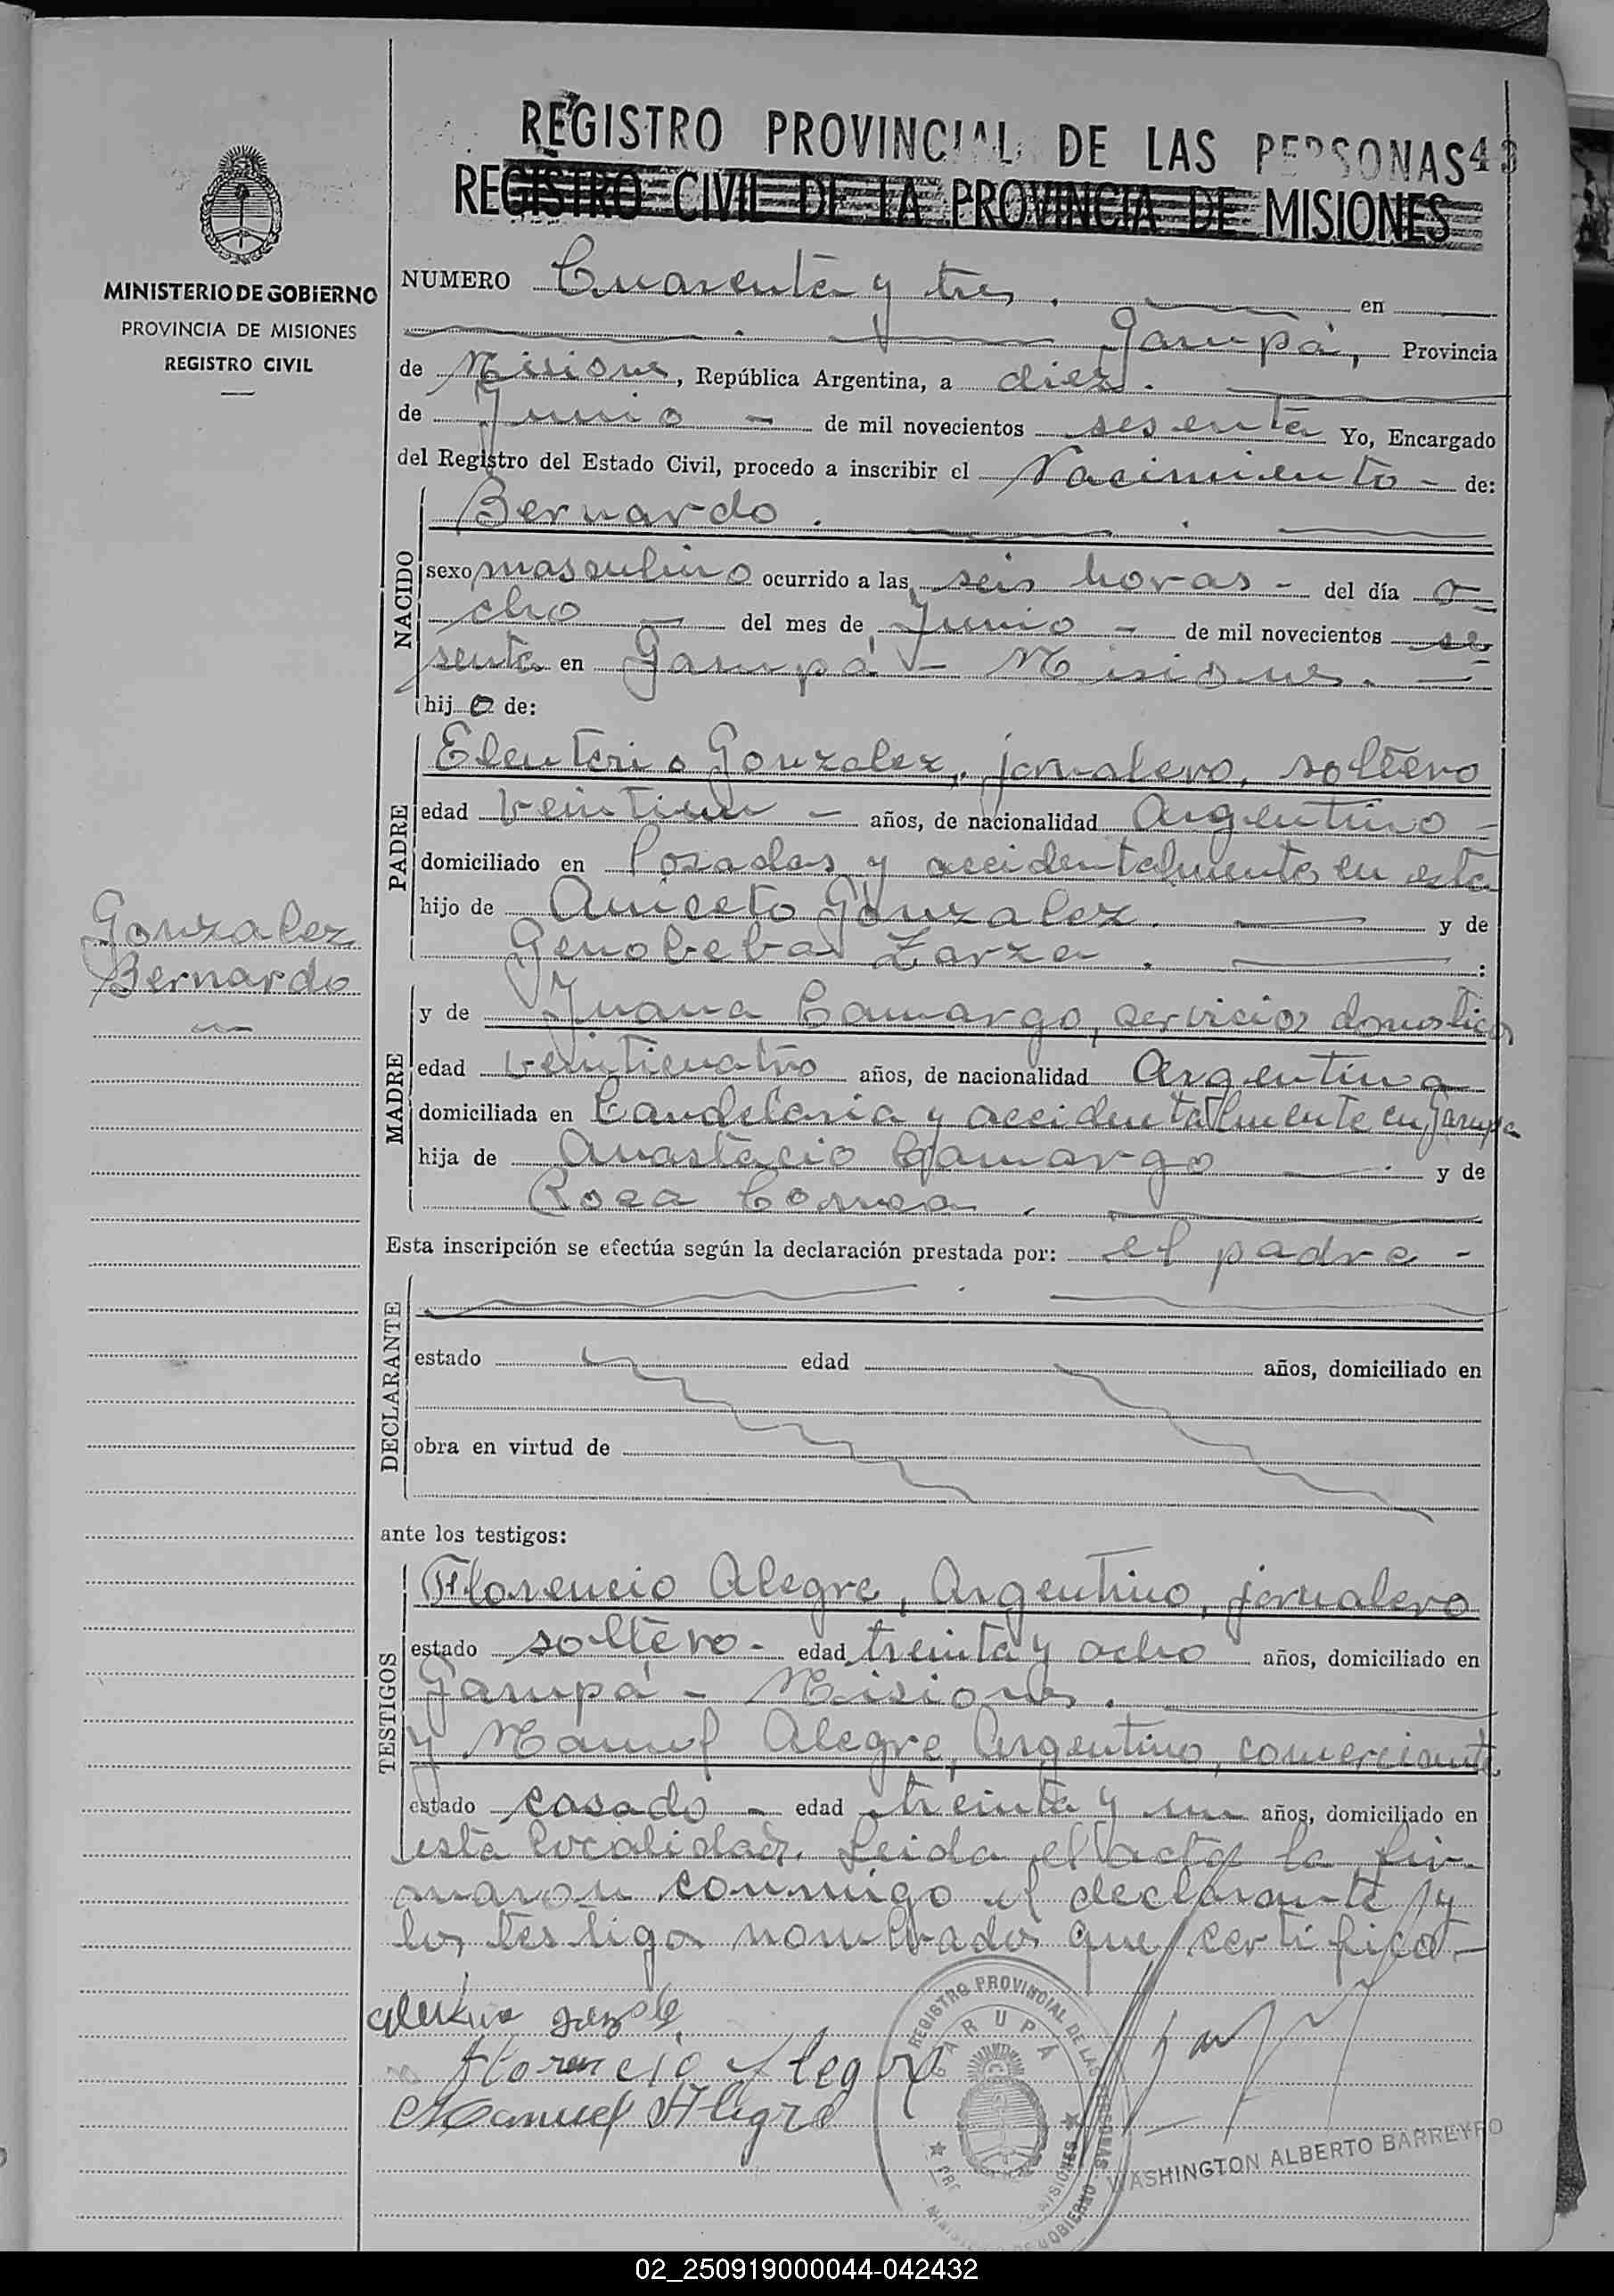 REGISTRO PROVINCIAL DE LAS PERSONAS 43
REGISTRO CIVIL DE LA PROVINCIA DE MISIONES
MINISTERIO DE GOBIERNO
PROVINCIA DE MISIONES
REGISTRO CIVIL
NUMERO Cuarenta y tres. en
Garupá, Provincia
de Misiones, República Argentina, a diez.
de Junio - de mil novecientos sesenta Yo, Encargado
del Registro del Estado Civil, procedo a inscribir el Nacimiento - de:
NACIDO
Bernardo.
sexo masculino ocurrido a las seis horas - del día o=
cho - del mes de Junio - de mil novecientos se=
senta en Garupá - Misiones. -
hijo de:
PADRE
Eleuterio Gonzalez, jornalero, soltero
edad veintiun - años, de nacionalidad Argentino -
domiciliado en Posadas y accidentalmente en esta
hijo de Aniceto Gonzalez. y de
Genobeba Zarza. :
Gonzalez
Bernardo
MADRE
y de Juana Camargo, servicios domesticos
edad veinticuatro años, de nacionalidad Argentina
domiciliada en Candelaria y accidentalmente en Garupa
hija de Anastacio Camargo y de
Rosa Correa.
Esta inscripción se efectúa según la declaración prestada por: el padre -
DECLARANTE
estado edad años, domiciliado en
obra en virtud de
ante los testigos:
TESTIGOS
Florencio Alegre, Argentino, jornalero
estado soltero - edad treinta y ocho años, domiciliado en
Garupá - Misiones.
y Manuel Alegre, Argentino, comerciante
estado casado - edad treinta y un años, domiciliado en
esta localidad. Leida el acta la fir-
maron conmigo el declarante y
los testigos nombrados que certifico -
Florencio Alegre
Manuel Alegre
REGISTRO PROVINCIAL DE LAS PERSONAS
GARUPÁ
MISIONES
WASHINGTON ALBERTO BARREYRO
02_250919000044-042432